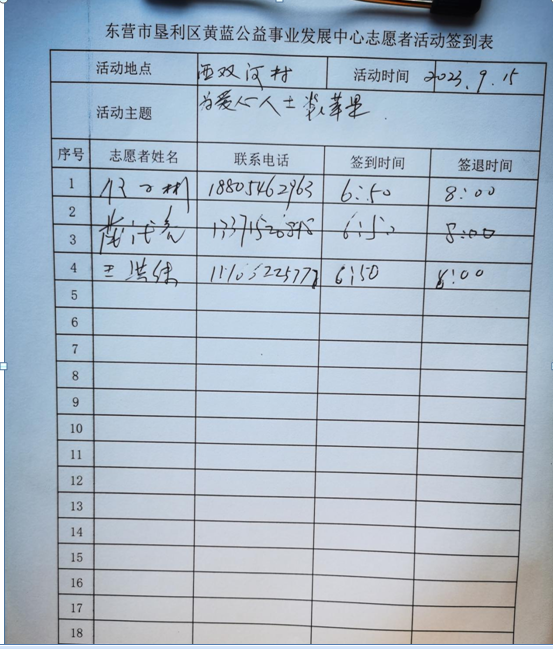 东营市垦利区黄蓝公益事业发展中心志愿者活动签到表
活动地点 西双河村 活动时间 2023.9.15
活动主题 为爱心人士 苹果
序号 志愿者姓名 联系电话 签到时间 签退时间
1 18805462963 6:50 8:00
2
3 6:50 8:00
4 王洪 6:50 8:00
5
6
7
8
9
10
11
12
13
14
15
16
17
18